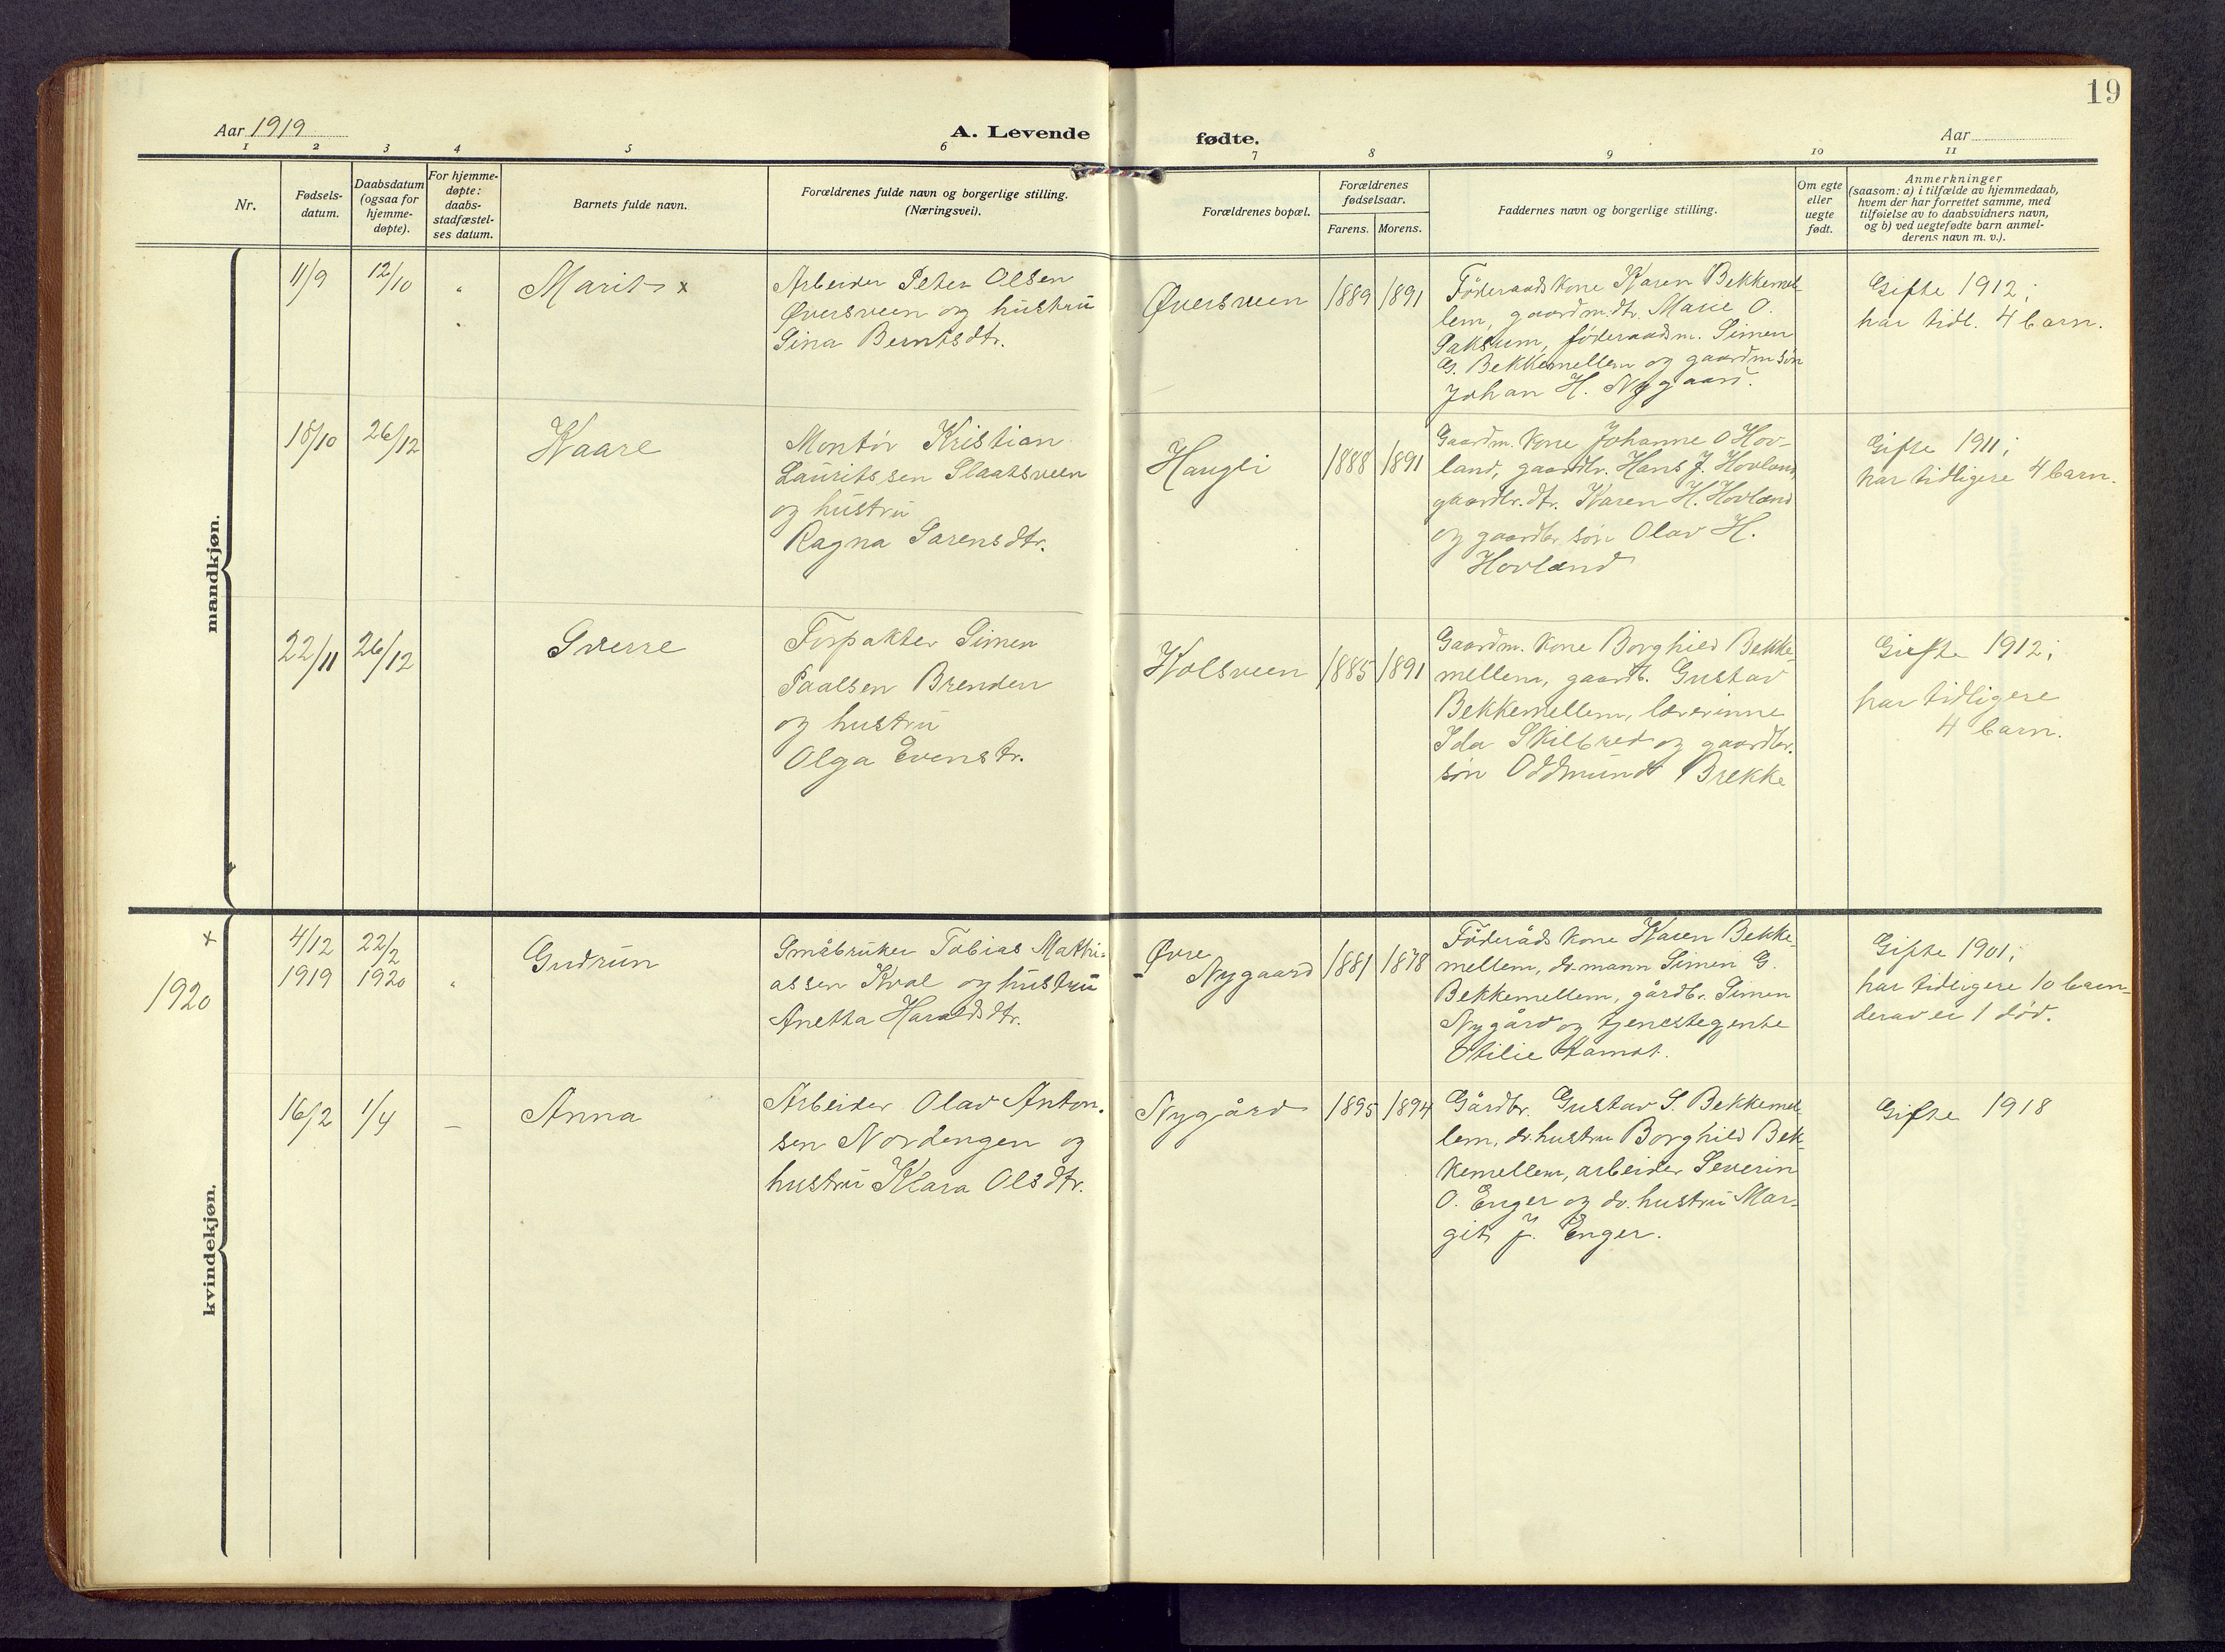 19
Aar 1919
A. Levende
fødte.
Aar
1 2 3 4 5 6 7 8 9 10 11
Nr.
Fødsels-
datum.
Daabsdatum
(ogsaa for
hjemme-
døpte).
For hjemme-
døpte:
daabs-
stadfæstel-
ses datum.
Barnets fulde navn.
Forældrenes fulde navn og borgerlige stilling.
(Næringsvei).
Forældrenes bopæl.
Forældrenes
fødselsaar.
Farens. Morens.
Faddernes navn og borgerlige stilling.
Om egte
eller
uegte
født.
Anmerkninger
(saasom: a) i tilfælde av hjemmedaab,
hvem der har forrettet samme, med
tilføielse av to daabsvidners navn,
og b) ved uegtefødte barn anmel-
derens navn m. v.).
mandkjøn.
11/9 12/10 " Marit x
Arbeider Peter Olsen
Øversveen og hustru
Gina Berntsdtr.
Øversveen 1889 1891
Föderaads kone Karen Bekkemel-
lem, gaardm.dtr. Marie O.
Saksum, föderaadsm. Simen
G. Bekkemellem og gaardm søn
Johan H. Nygaard.
Gifte 1912;
har tidl. 4 barn.
18/10 26/12 Kaare
Montör Kristian
Lauritssen Slaatsveen
og hustru
Ragna Larensdtr.
Haugli 1888 1891
Gaardm. kone Johanne O Hov-
land, gaardbr. Hans J. Hovland,
gaardbr. dtr. Karen H. Hovland
og gaardbr. søn Olav H.
Hovland
Gifte 1911;
har tidligere 4 barn.
22/11 26/12 Sverre
Forpakter Simen
Paalsen Brenden
og hustru
Olga Evensdtr.
Kolsveen 1885 1891
Gaardm. kone Borghild Bekke-
mellem, gaardb. Gustav
Bekkemellem, lærerinne
Ida Skilbred og gaardbr.
søn Oddmund Brekke
Gifte 1912;
har tidligere
4 barn.
kvindekjøn.
x
1920
4/12 1919
22/2 1920
" Gudrun
Småbruker Tobias Mathi-
assen Kval og hustru
Anetta Haraldsdtr.
Øvre
Nygaard 1881 1878
Föderåds kone Karen Bekke-
mellem, dr. mann Simen G.
Bekkemellem, gårdbr. Simen
Nygård og tjenestegente
Otilie
Gifte 1901;
har tidligere 10 barn-
derav er 1 död.
16/2 1/4 – Anna
Arbeider Olav Anton-
sen Nordengen og
hustru Klara Olsdtr.
Nygård 1895 1894
Gårdbr. Gustav S. Bekkemel-
lem, dr. hustru Borghild Bek-
kemellem, arbeider Severin
O. Enger og dr. hustru Mar-
git J. Enger.
Gifte 1918